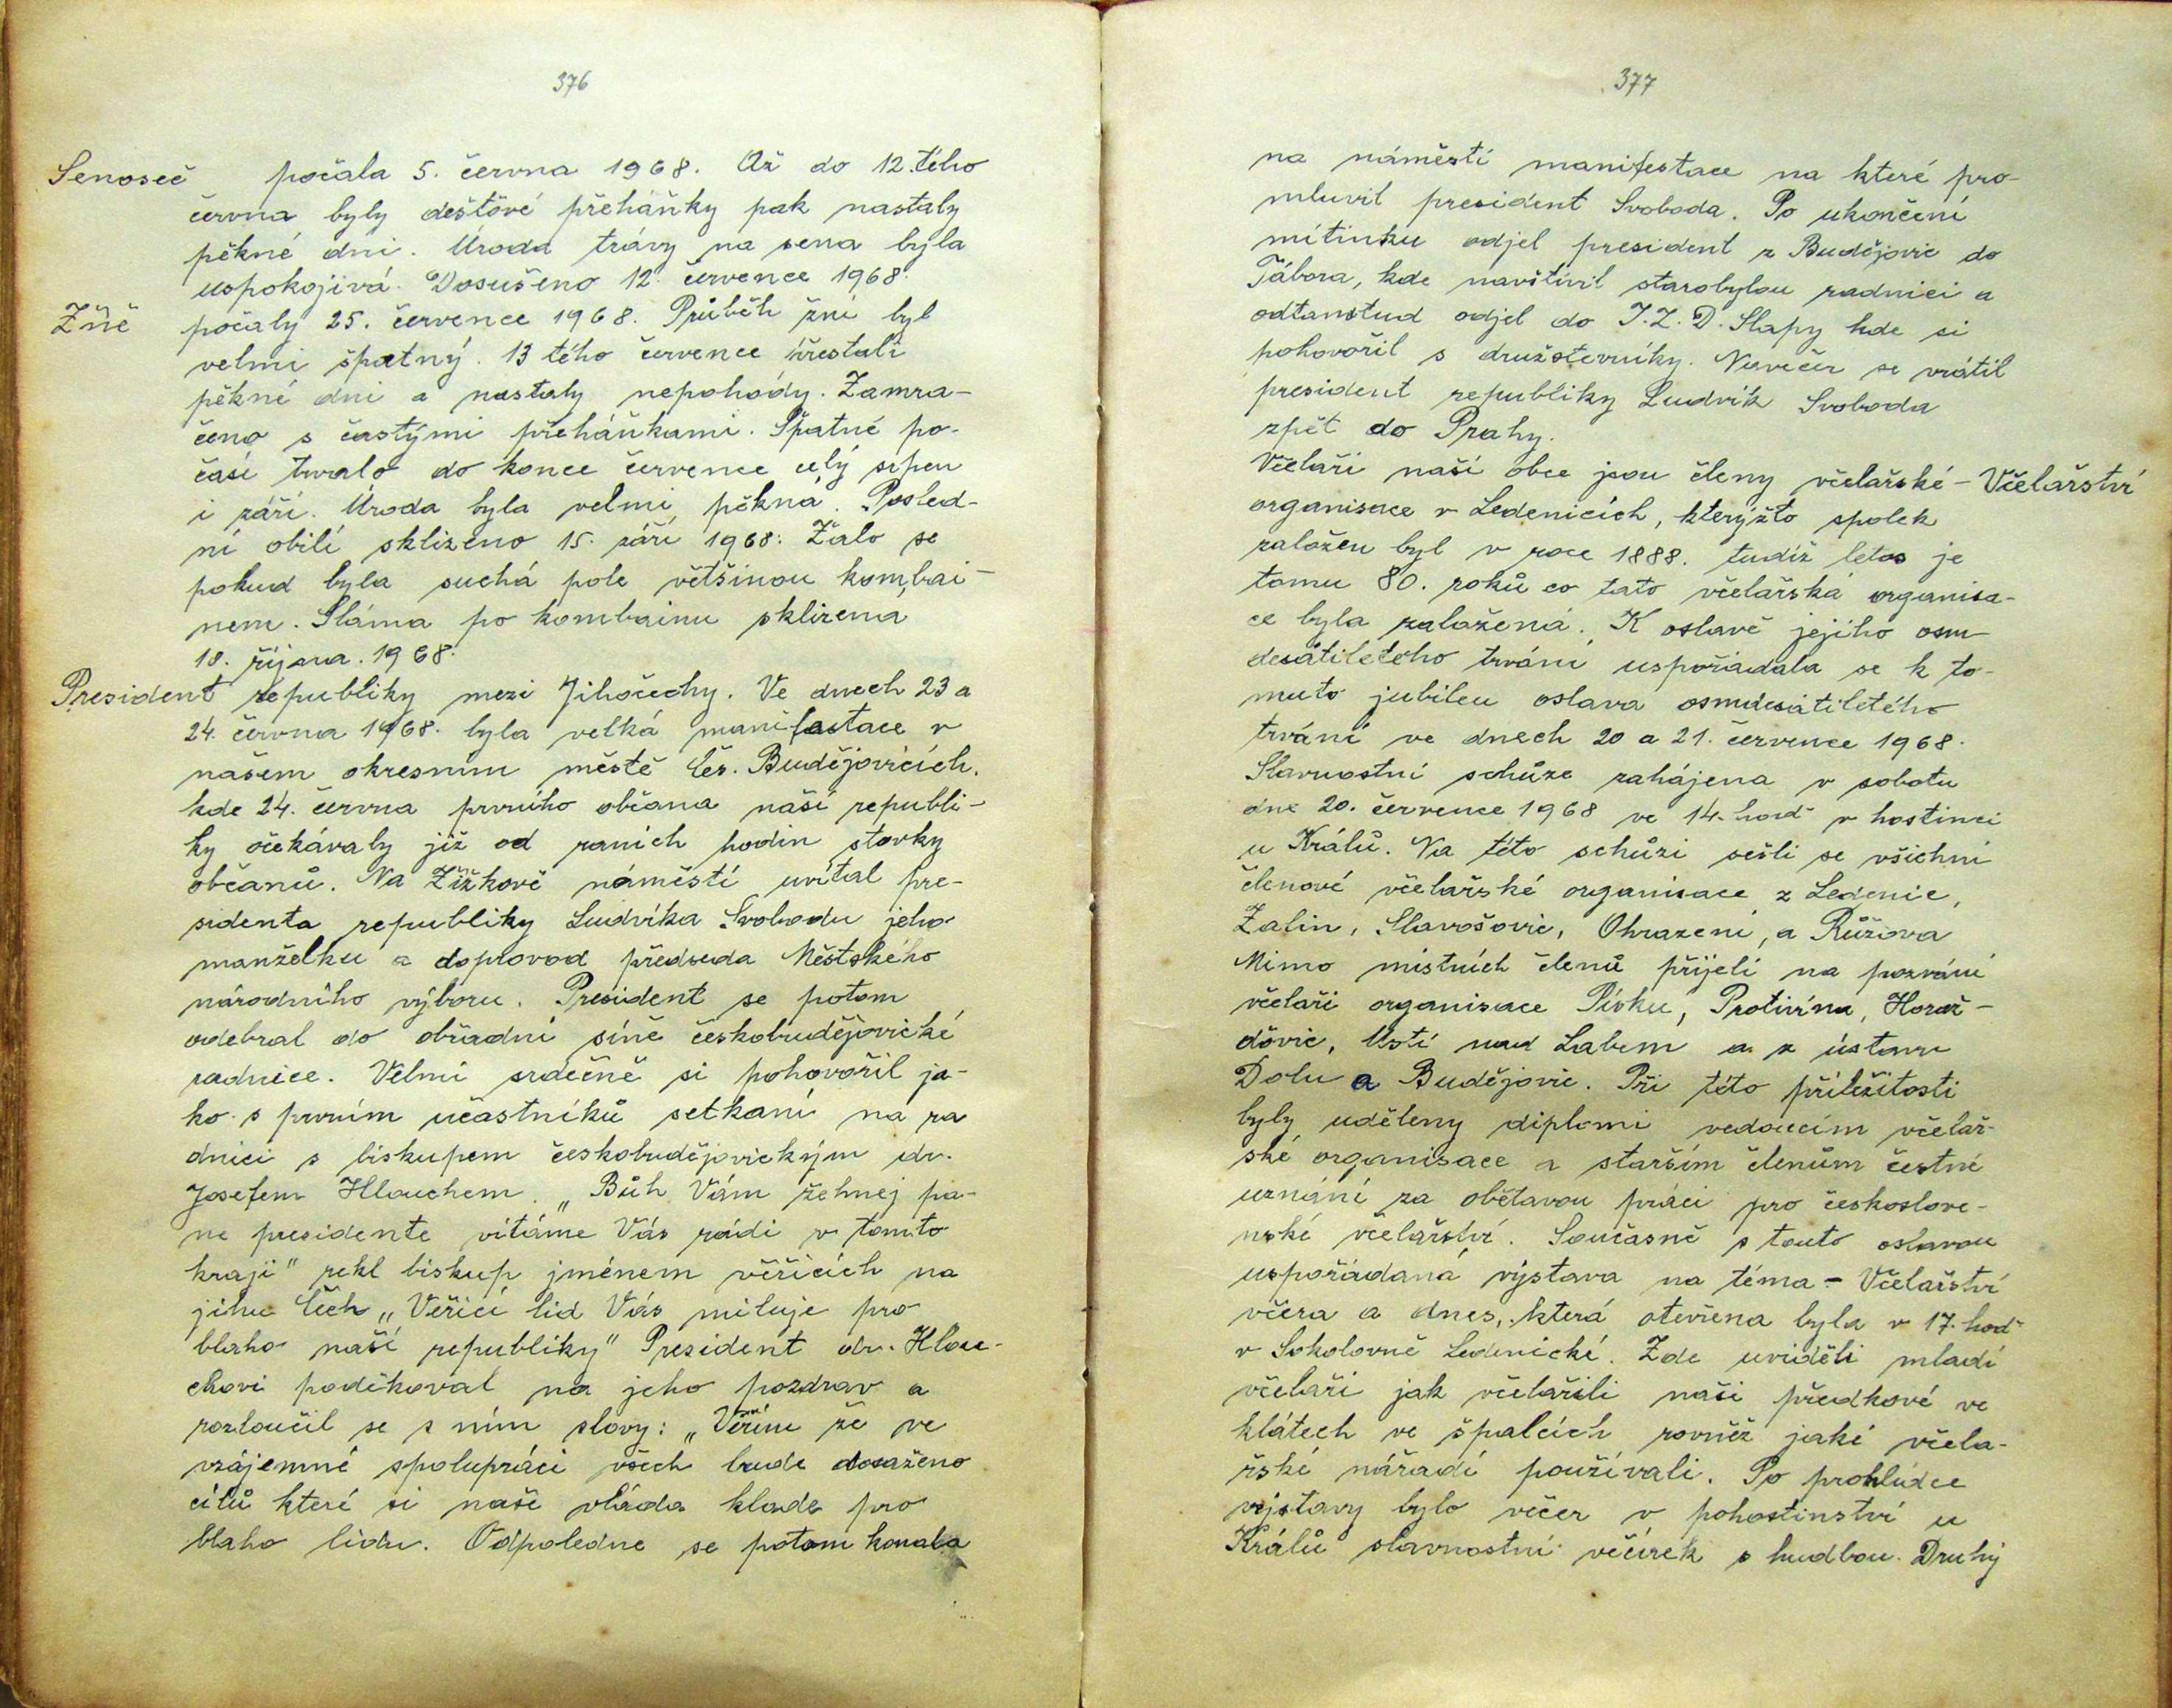 376
Senoseč počala 5. června 1968. Až do 12.tého
června byly deštové přeháňky pak nastaly
pěkné dni. Úroda trávy na sena byla
uspokojivá. Dosušeno 12. července 1968.
Žně počaly 25. července 1968. Průběh žní byl
velmi špatný. 13 tého července přestali
pěkné dni a nastaly nepohódy. Zamra-
čeno s častými přeháňkami. Špatné po-
časí trvalo do konce července celý srpen
i září. Úroda byla velmi pěkná. Posled-
ní obilí sklizeno 15. září 1968. Žalo se
pokud byla suchá pole většinou kombai-
nem. Sláma po kombainu sklizena
18. října. 1968.
President republiky mezi Jihočechy. Ve dnech 23 a
24. června 1968. byla velká manifastace v
našem okresním městě Čes. Budějovicích.
kde 24. června prvního občana naší republi-
ky očekávaly již od raních hodin stovky
občanů. Na Žižkově náměstí uvítal pre-
sidenta republiky Ludvíka Svobodu jeho
manželku a doprovod předseda Městského
národního výboru. President se potom
odebral do obřadní síně českobudějovické
radnice. Velmi srdečně si pohovořil ja-
ko s prvním učastníků setkaní na ra
dnici s biskupem českobudějovickým dr.
Josefem Hlouchem. „Bůh Vám žehnej pa-
ne presidente vítáme Vás rádi v tomto
kraji" rekl biskup jménem věřících na
jihu Čech „Věřící lid Vás miluje pro
blaho naší republiky" President dr. Hlou-
chovi poděkoval na jeho pozdrav a
rozloučil se s ním slovy: „Věřím že ve
vzájemné spolupráci všech bude dosaženo
cílů které si naše vláda klade pro
blaho lidu. Odpoledne se potom konala
377
na náměstí manifestace na které pro-
mluvil president Svoboda. Po ukončení
mítinku odjel president z Budějovic do
Tábora, kde navštívil starobylou radnici a
odtamstud odjel do J.Z.D. Slapy kde si
pohovořil s družstevníky. Navečer se vrátil
president republiky Ludvík Svoboda
zpět do Prahy.
Včelaři naší obce jsou členy včelařské - Včelařství
organisace v Ledenicích, kterýžto spolek
založen byl v roce 1888. tudíž letos je
tomu 80. roků co tato včelařská organisa-
ce byla založená. K oslavě jejího osm
desátiletého trvání uspořiadala se k to-
muto jubileu oslava osmdesátiletého
trvání ve dnech 20 a 21. července 1968.
Slavnostní schůze zahájena v sobotu
dne 20. července 1968 ve 14. hod v hostinci
u Králů. Na této schůzi sešli se všichni
členové včelařské organisace z Ledenic,
Zalin, Slavošovic, Ohrazení, a Růžova
Mimo místních členů přijeli na pozvání
včelaři organisace Písku, Protivína, Horaž-
dóvic, Ústí nad Labem a z ústavu
Dolu a Budějovic. Při této příležitosti
byly uděleny diplomi vedoucím včelař-
ské organisace a starším členům čestné
uznání za obětavou práci pro českoslove-
nské včelařství. Současně s touto oslavou
uspořádaná výstava na téma - Včelařství
včera a dnes, která otevřena byla v 17. hod
v Sokolovně Ledenické. Zde uviděli mladí
včelaři jak včelařili naši předkové ve
klátech ve špalcích rovněž jaké včela-
řské nářadí používali. Po prohlídce
výstavy bylo večer v pohostinství u
Králů slavnostní večírek s hudbou. Druhý